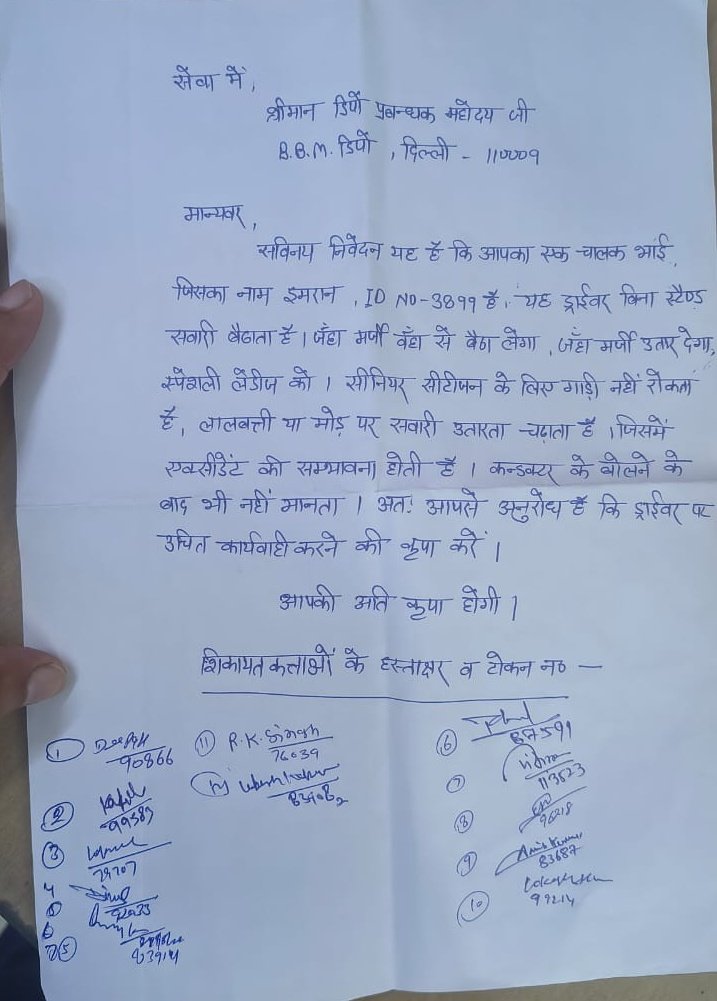 सेवा में,
श्रीमान डिपो प्रबन्धक महोदय जी
B.B.M. डिपो, दिल्ली - 110009
मान्यवर,
सविनय निवेदन यह है कि आपका एक चालक भाई,
जिसका नाम इमरान, ID NO-3899 है, यह ड्राईवर बिना स्टैण्ड
सवारी बैठाता है। जँहा मर्जी वँहा से बैठा लेगा, जँहा मर्जी उतार देगा,
स्पेशली लेडीज को। सीनियर सीटीजन के लिए गाड़ी नहीं रोकता
है, लालबत्ती या मोड़ पर सवारी उतारता चढ़ाता है। जिसमें
एक्सीडेंट की सम्भावना होती है। कन्डक्टर के बोलने के
बाद भी नहीं मानता। अतः आपसे अनुरोध है कि ड्राईवर पर
उचित कार्यवाही करने की कृपा करें।
आपकी अति कृपा होगी।
शिकायतकर्त्ताओं के हस्ताक्षर व टोकन न० —
① Deepak
90866
②
99589
③
79707
4
⑤
⑪ R.K. Singh
76039
⑥
87591
7
113523
8
96218
9 Amit Kumar
83687
⑩
99214